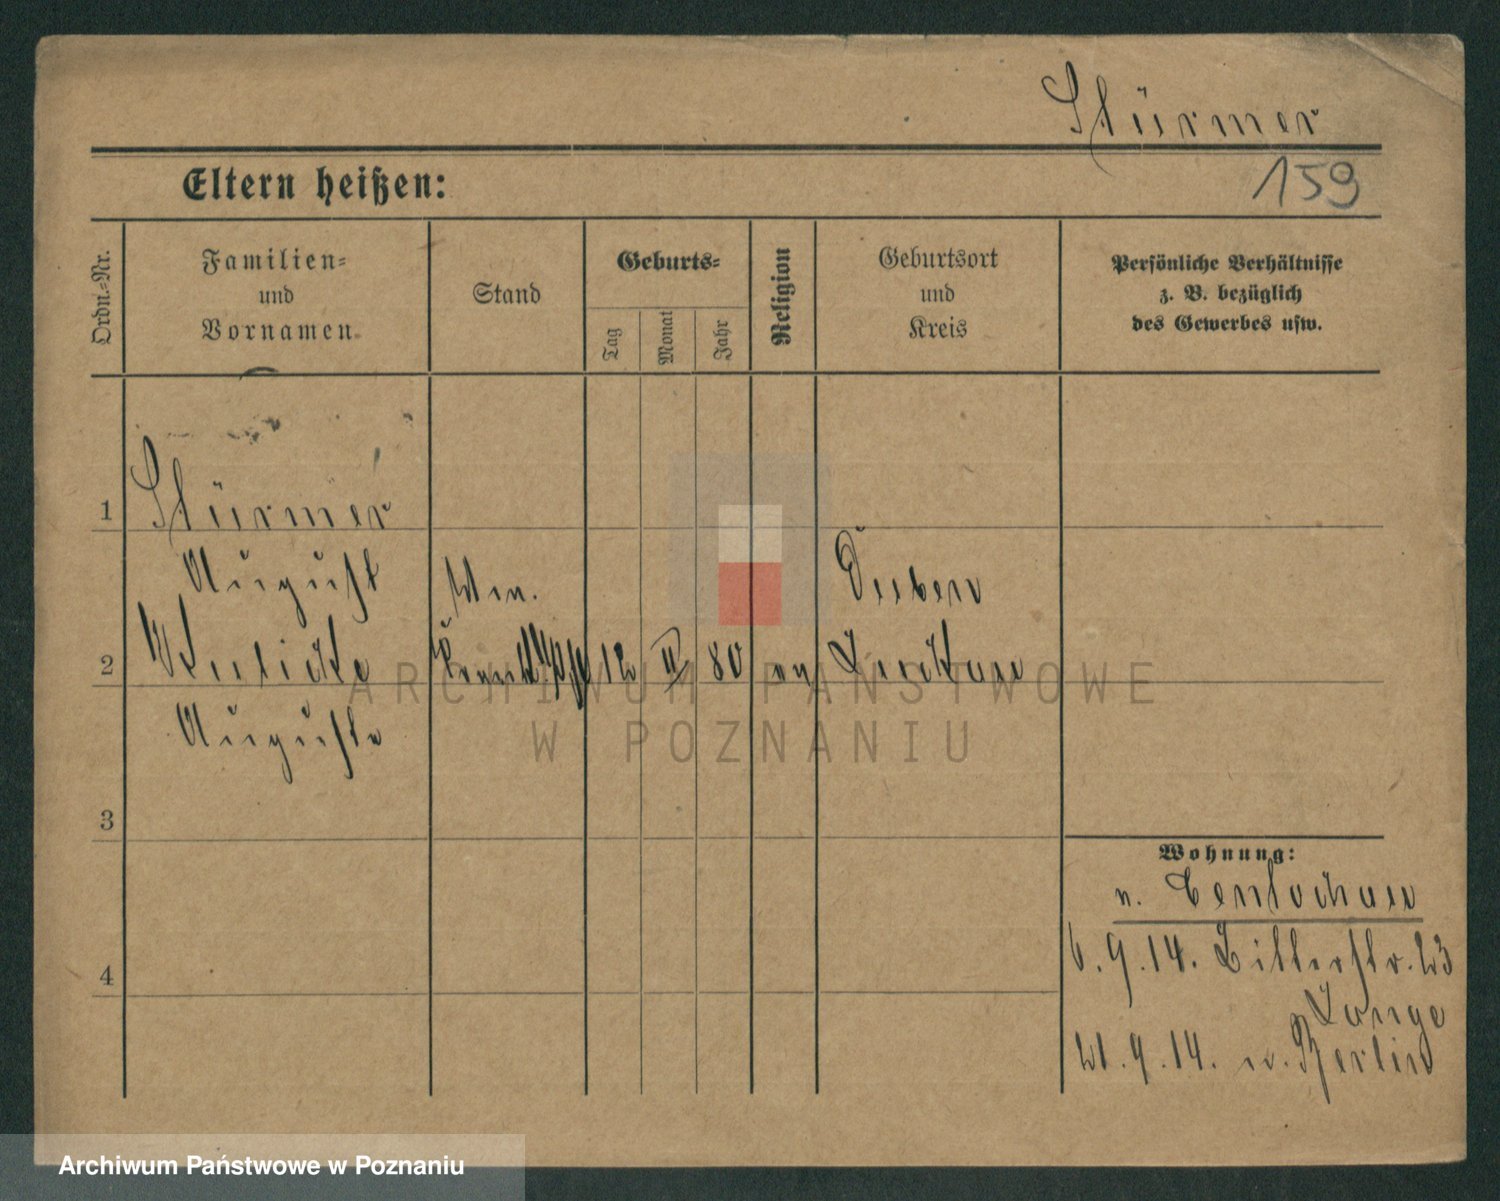 Stürmer
159
Eltern heißen:
Ordn.-Nr.
Familien-
und
Vornamen.
Stand
Geburts-
Tag
Monat
Jahr
Religion
Geburtsort
und
Kreis
Persönliche Verhältnisse
z. B. bezüglich
des Gewerbes usw.
1
Stürmer
August
2
Auguste
12
II
80
ev
Luckau
3
4
Wohnung:
v. Bentschen
6.9.14.
Lange
21.9.14. n. Berlin
ARCHIWUM PAŃSTWOWE
W POZNANIU
Archiwum Państwowe w Poznaniu